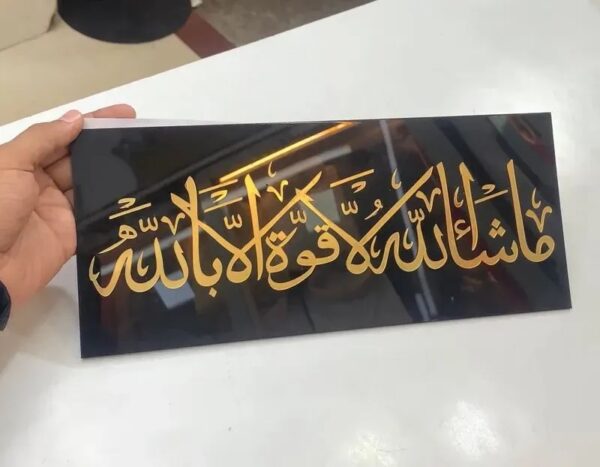 ماشاءالله لا قوة الا بالله